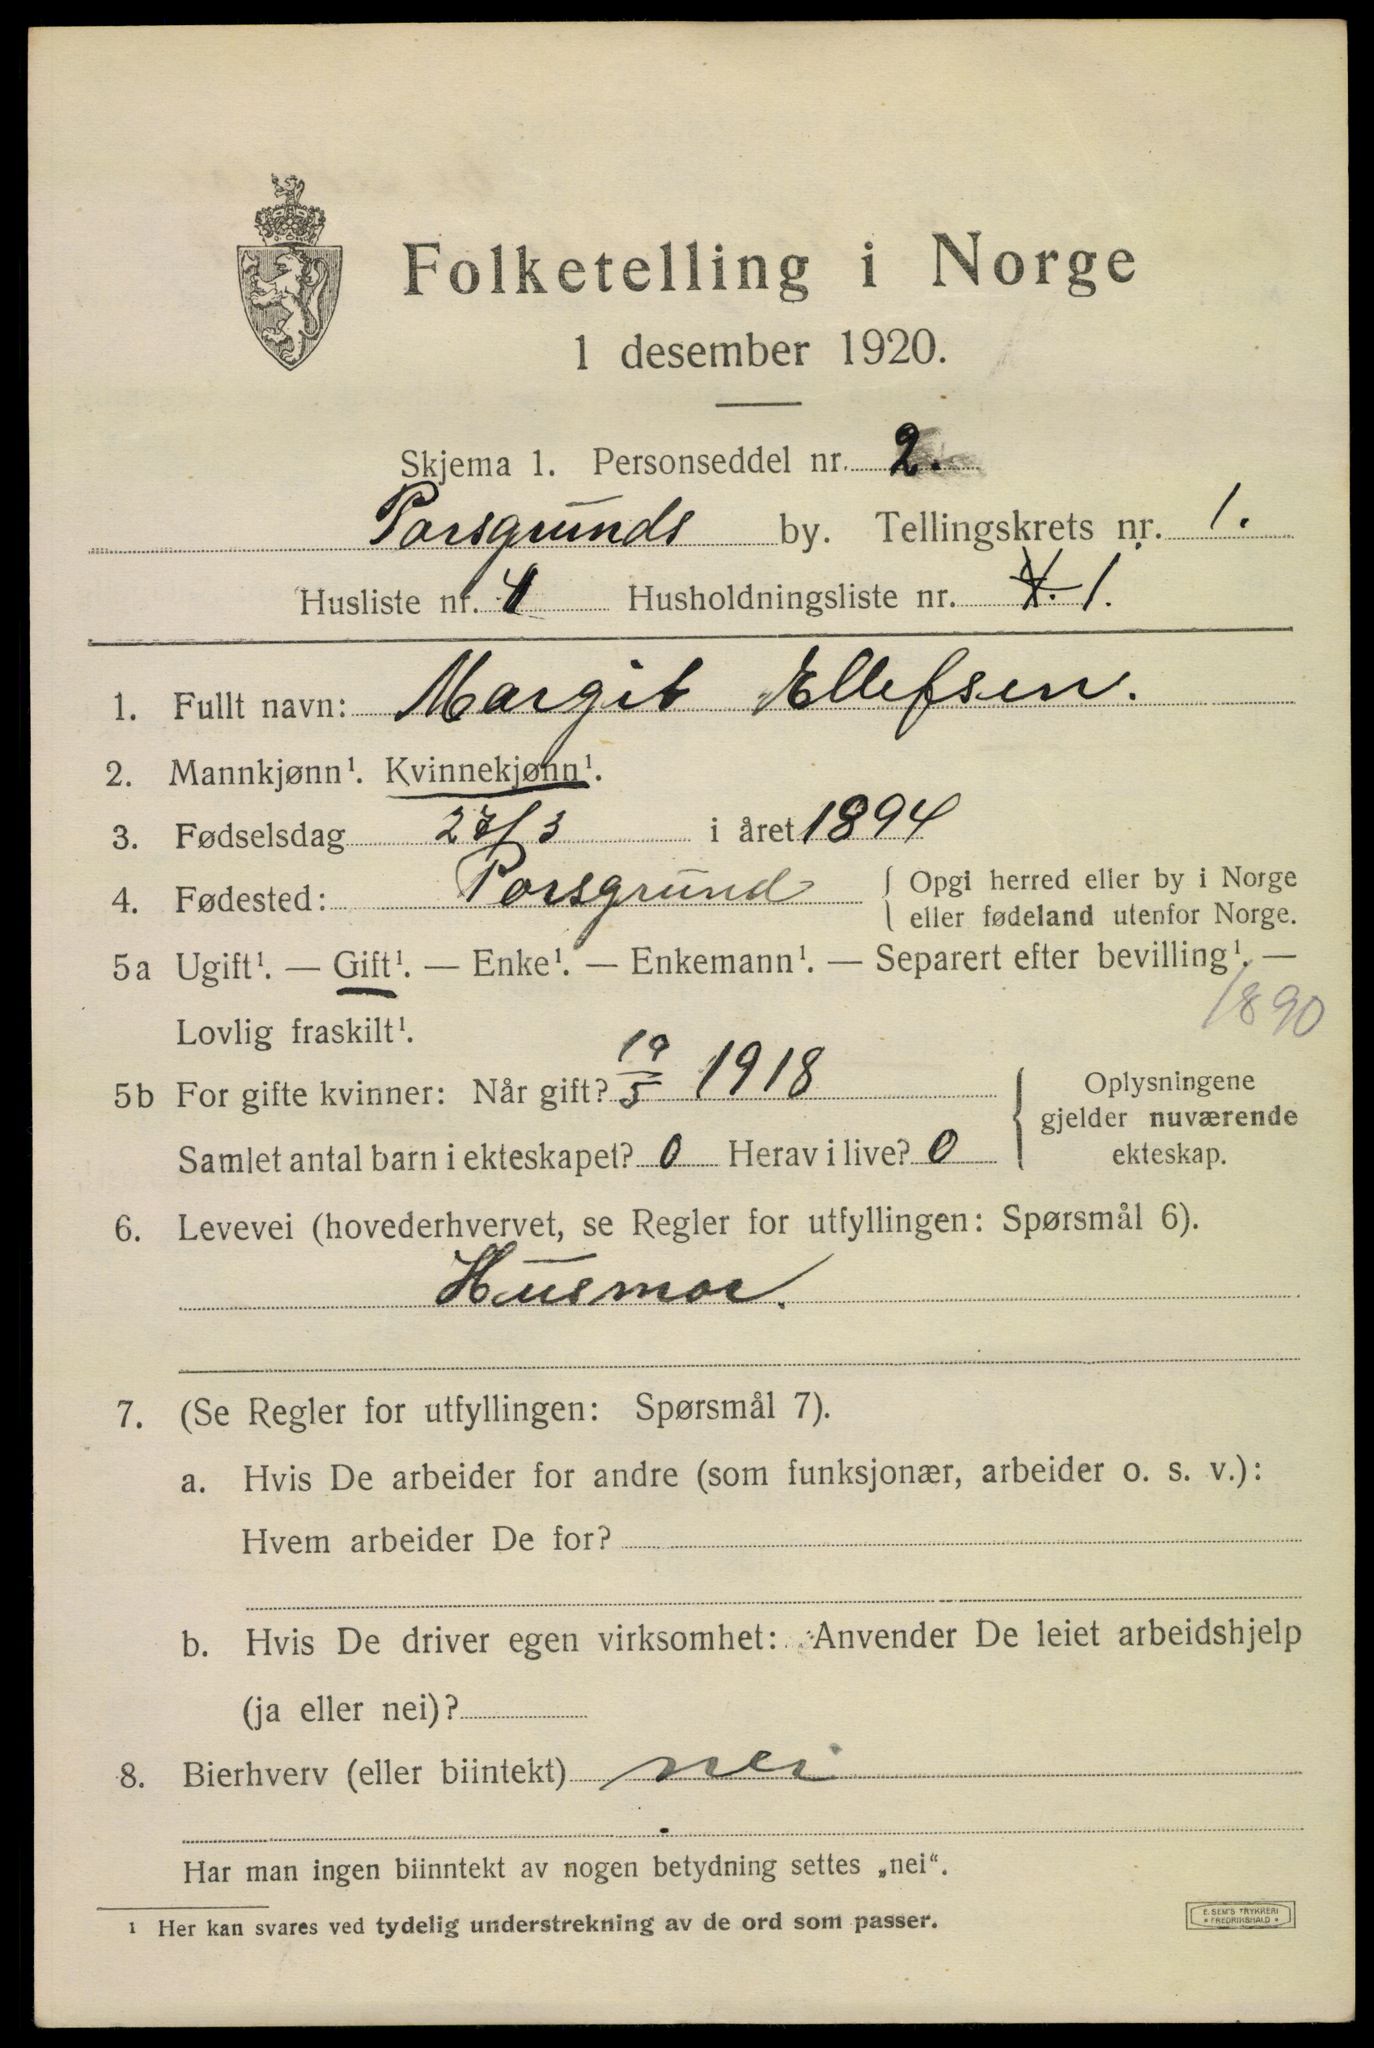 Folketelling i Norge
1 desember 1920.
Skjema 1. Personseddel nr. 2.
Porsgrunds by. Tellingskrets nr. 1.
Husliste nr. 1 Husholdningsliste nr. 1.
1. Fullt navn: Margit Ellefsen.
2. Mannkjønn¹. Kvinnekjønn¹.
3. Fødselsdag 27/3 i året 1894
4. Fødested: Porsgrund { Opgi herred eller by i Norge
eller fødeland utenfor Norge.
5a Ugift¹. — Gift¹. — Enke¹. — Enkemann¹. — Separert efter bevilling¹. —
Lovlig fraskilt¹. 1890
5b For gifte kvinner: Når gift? 19/5 1918
Samlet antal barn i ekteskapet? 0 Herav i live? 0
{ Oplysningene
gjelder nuværende
ekteskap.
6. Levevei (hovederhvervet, se Regler for utfyllingen: Spørsmål 6).
Husmor.
7. (Se Regler for utfyllingen: Spørsmål 7).
a. Hvis De arbeider for andre (som funksjonær, arbeider o. s. v.):
Hvem arbeider De for?
b. Hvis De driver egen virksomhet: Anvender De leiet arbeidshjelp
(ja eller nei)?
8. Bierhverv (eller biintekt) nei
Har man ingen biinntekt av nogen betydning settes „nei“.
¹ Her kan svares ved tydelig understrekning av de ord som passer.
E. SEM'S TRYKKERI
* FREDRIKSHALD *